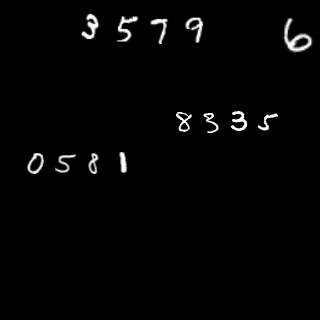 3579 6
8335
0581